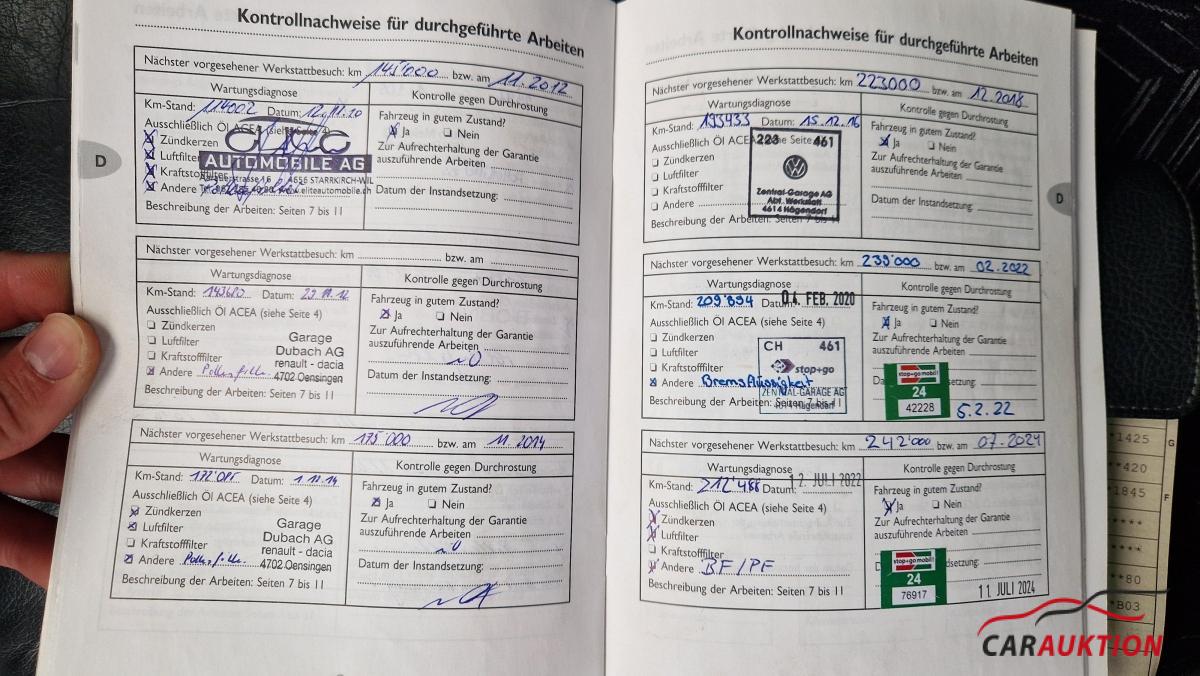 Kontrollnachweise für durchgeführte Arbeiten
Nächster vorgesehener Werkstattbesuch: km 145'000 bzw. am 11.2012
Wartungsdiagnose
Kontrolle gegen Durchrostung
Km-Stand: 114002 Datum: 12.11.10
Fahrzeug in gutem Zustand?
Ausschließlich Öl ACEA (siehe Seite 4)
Ja Nein
Zündkerzen
Zur Aufrechterhaltung der Garantie
Luftfilter
auszuführende Arbeiten
AUTOMOBILE AG
Kraftstofffilter
4656 STARRKIRCH-WIL
Andere
www.eliteautomobile.ch
Datum der Instandsetzung:
Beschreibung der Arbeiten: Seiten 7 bis 11
D
Nächster vorgesehener Werkstattbesuch: km bzw. am
Wartungsdiagnose
Kontrolle gegen Durchrostung
Km-Stand: 143680 Datum: 29.11.12
Fahrzeug in gutem Zustand?
Ausschließlich Öl ACEA (siehe Seite 4)
Ja Nein
Zündkerzen
Zur Aufrechterhaltung der Garantie
Luftfilter
auszuführende Arbeiten
Kraftstofffilter
Andere
Garage
Dubach AG
renault - dacia
4702 Oensingen
Datum der Instandsetzung:
Beschreibung der Arbeiten: Seiten 7 bis 11
Nächster vorgesehener Werkstattbesuch: km 175'000 bzw. am 11.2014
Wartungsdiagnose
Kontrolle gegen Durchrostung
Km-Stand: Datum: 1.12.14
Fahrzeug in gutem Zustand?
Ausschließlich Öl ACEA (siehe Seite 4)
Ja Nein
Zündkerzen
Zur Aufrechterhaltung der Garantie
Luftfilter
auszuführende Arbeiten
Kraftstofffilter
Andere
Garage
Dubach AG
renault - dacia
4702 Oensingen
Datum der Instandsetzung:
Beschreibung der Arbeiten: Seiten 7 bis 11
Kontrollnachweise für durchgeführte Arbeiten
Nächster vorgesehener Werkstattbesuch: km 223000 bzw. am 12.2018
Wartungsdiagnose
Kontrolle gegen Durchrostung
Km-Stand: 193433 Datum: 15.12.16
Fahrzeug in gutem Zustand?
Ausschließlich Öl ACEA Seite 4)
Ja Nein
Zündkerzen
Zur Aufrechterhaltung der Garantie
Luftfilter
auszuführende Arbeiten
Kraftstofffilter
Andere
223 461
Zentral-Garage AG
Abt. Werkstatt
4614 Hägendorf
Datum der Instandsetzung:
Beschreibung der Arbeiten: Seiten 7 bis 11
D
Nächster vorgesehener Werkstattbesuch: km 239'000 bzw. am 02.2022
Wartungsdiagnose
Kontrolle gegen Durchrostung
Km-Stand: 209'894 Datum: 04. FEB. 2020
Fahrzeug in gutem Zustand?
Ausschließlich Öl ACEA (siehe Seite 4)
Ja Nein
Zündkerzen
Zur Aufrechterhaltung der Garantie
Luftfilter
auszuführende Arbeiten
Kraftstofffilter
CH 461
stop+go
Andere Bremsflüssigkeit
ZENTRAL-GARAGE AG
Beschreibung der Arbeiten: Seiten 7 bis 11
stop+go mobil
24
42228
5.2.22
Nächster vorgesehener Werkstattbesuch: km 242'000 bzw. am 07.2024
Wartungsdiagnose
Kontrolle gegen Durchrostung
Km-Stand: 212'488 Datum: 12. JULI 2022
Fahrzeug in gutem Zustand?
Ausschließlich Öl ACEA (siehe Seite 4)
Ja Nein
Zündkerzen
Zur Aufrechterhaltung der Garantie
Luftfilter
auszuführende Arbeiten
Kraftstofffilter
Andere BF/PF
Beschreibung der Arbeiten: Seiten 7 bis 11
stop+go mobil
24
76917
11. JULI 2024
1425
G
**420
*1845
F
****
****
**80
*B03
CARAUKTION